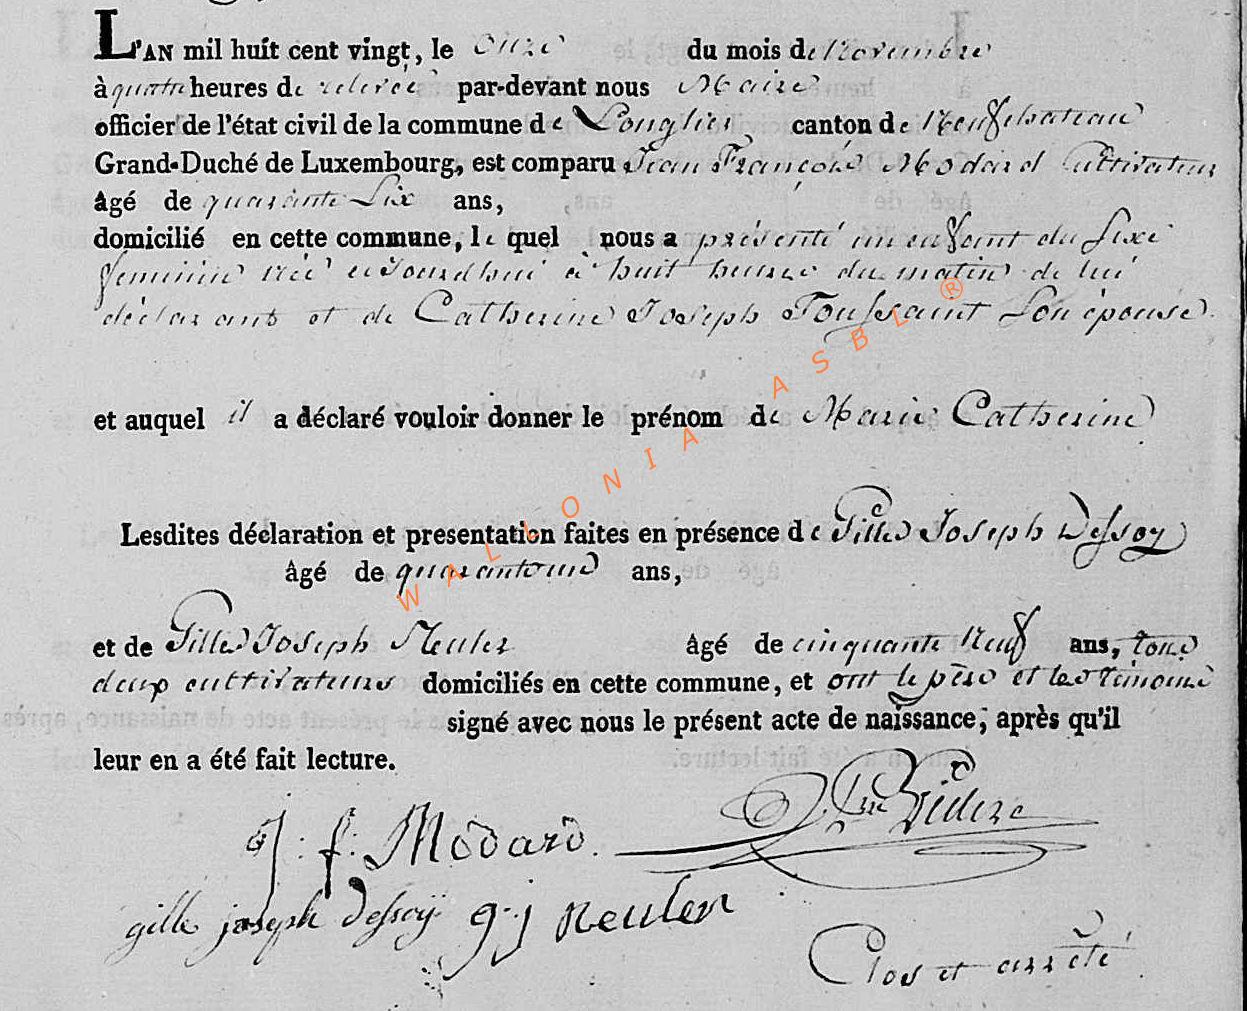 L'AN mil huit cent vingt, le onze du mois de Novembre
à quatre heures de relevée par-devant nous Maire
officier de l'état civil de la commune de Longlier canton de Neufchateau
Grand-Duché de Luxembourg, est comparu Jean François Modard Cultivateur
âgé de quarante Six ans,
domicilié en cette commune, le quel nous a présenté un enfant du Sexe
feminin née aujourdhui à huit heures du matin de lui
déclarant et de Catherine Joseph Toussaint Son épouse
et auquel il a déclaré vouloir donner le prénom de Marie Catherine
Lesdites déclaration et presentation faites en présence de Gille Joseph Dessoy
âgé de ans,
et de Gille Joseph Neuler âgé de cinquante Neuf ans, tous
deux cultivateurs domiciliés en cette commune, et ont le père et les témoins
signé avec nous le présent acte de naissance, après qu'il
leur en a été fait lecture.
J: f: Modard.
gille joseph dessoÿ g:j neuler
Clos et arrêté
WALLONIA ASBL ®